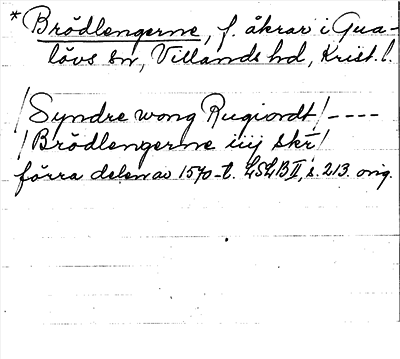 *Brödlengerne, f. åkrar i Gua-
lövs sn, Villands hd, Krist. l.
/Syndre wong Rugiordt/----
/Brödlengerne iiij skr̄/
förra delen av 1570-t. LSLB II, s. 213. orig.